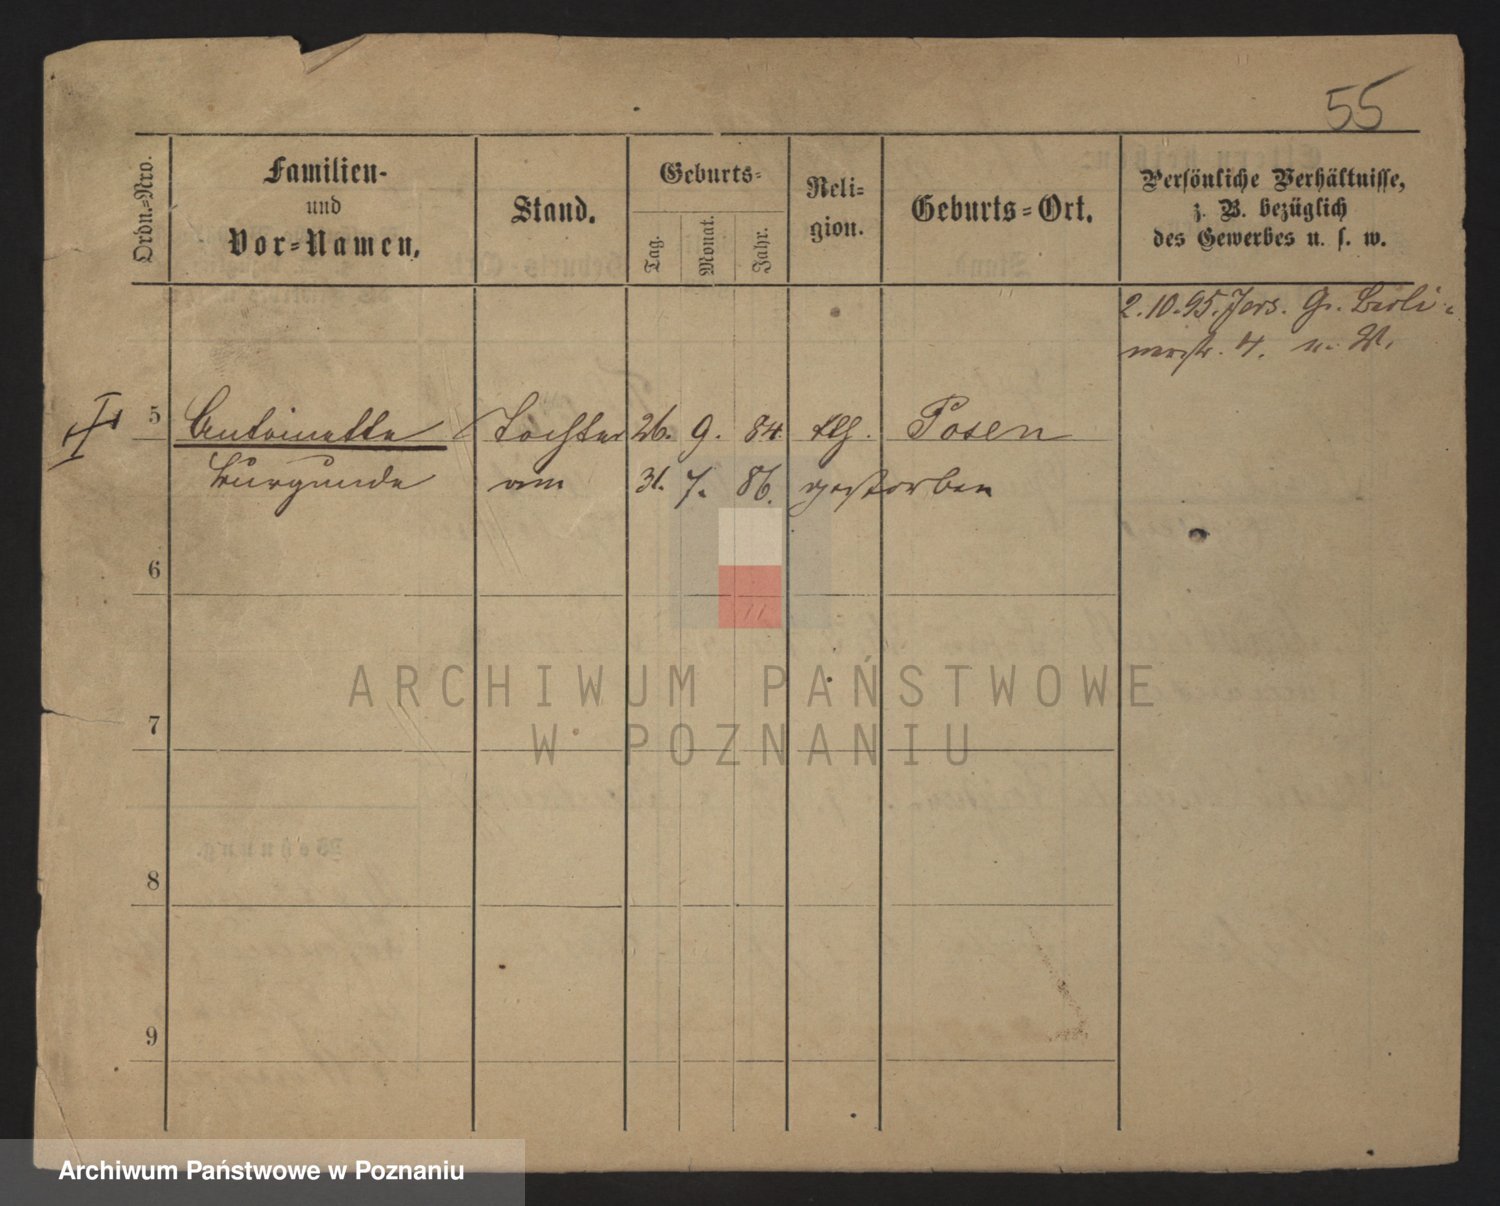 55
Ordn.-Nro.
Familien-
und
Vor-Namen.
Stand.
Geburts-
Tag.
Monat.
Jahr.
Reli-
gion.
Geburts-Ort.
Persönliche Verhältnisse,
z. B. bezüglich
des Gewerbes u. s. w.
2.10.95. Jers. Gr. Berli-
nerstr. 4. u. W.
5 Antoinette Tochter 26. 9. 84. klh. Posen
Kurgunde am 31. 7. 86. gestorben
6
7
8
9
Wohnung.
ARCHIWUM PAŃSTWOWE
W POZNANIU
Archiwum Państwowe w Poznaniu